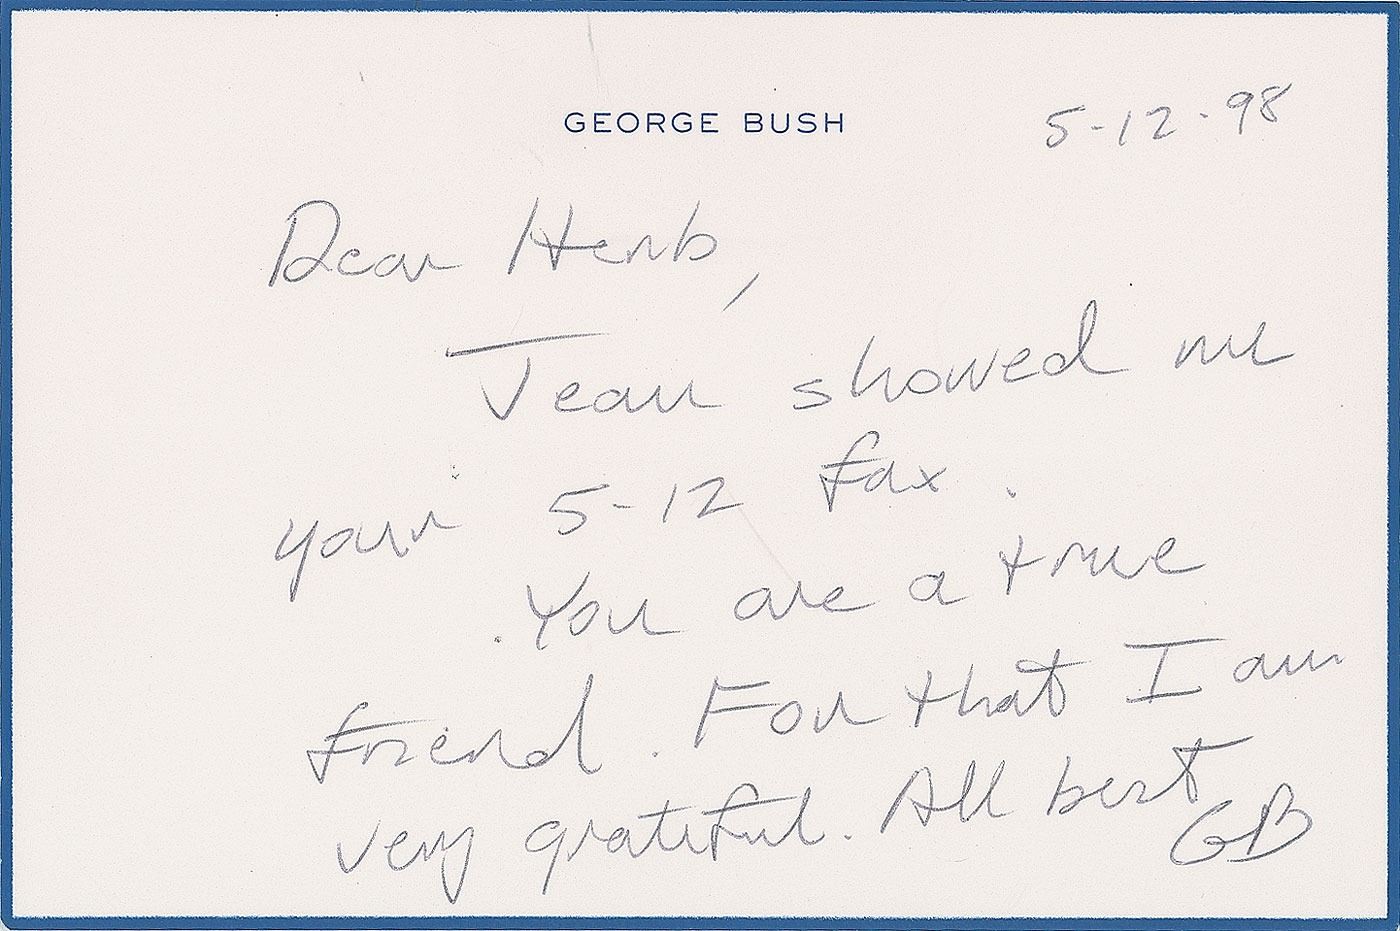 GEORGE BUSH
5-12-98
Dear Herb,
Jean showed me
your 5-12 fax.
You are a true
friend. For that I am
very grateful. All best
GB